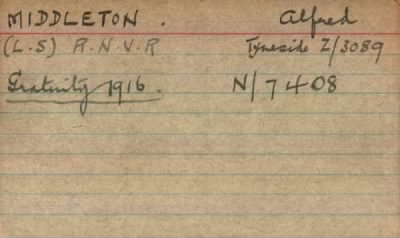 MIDDLETON. Alfred
(L.S) R.N.V.R Tyneside Z/3089
Gratuity 1916. N/7408